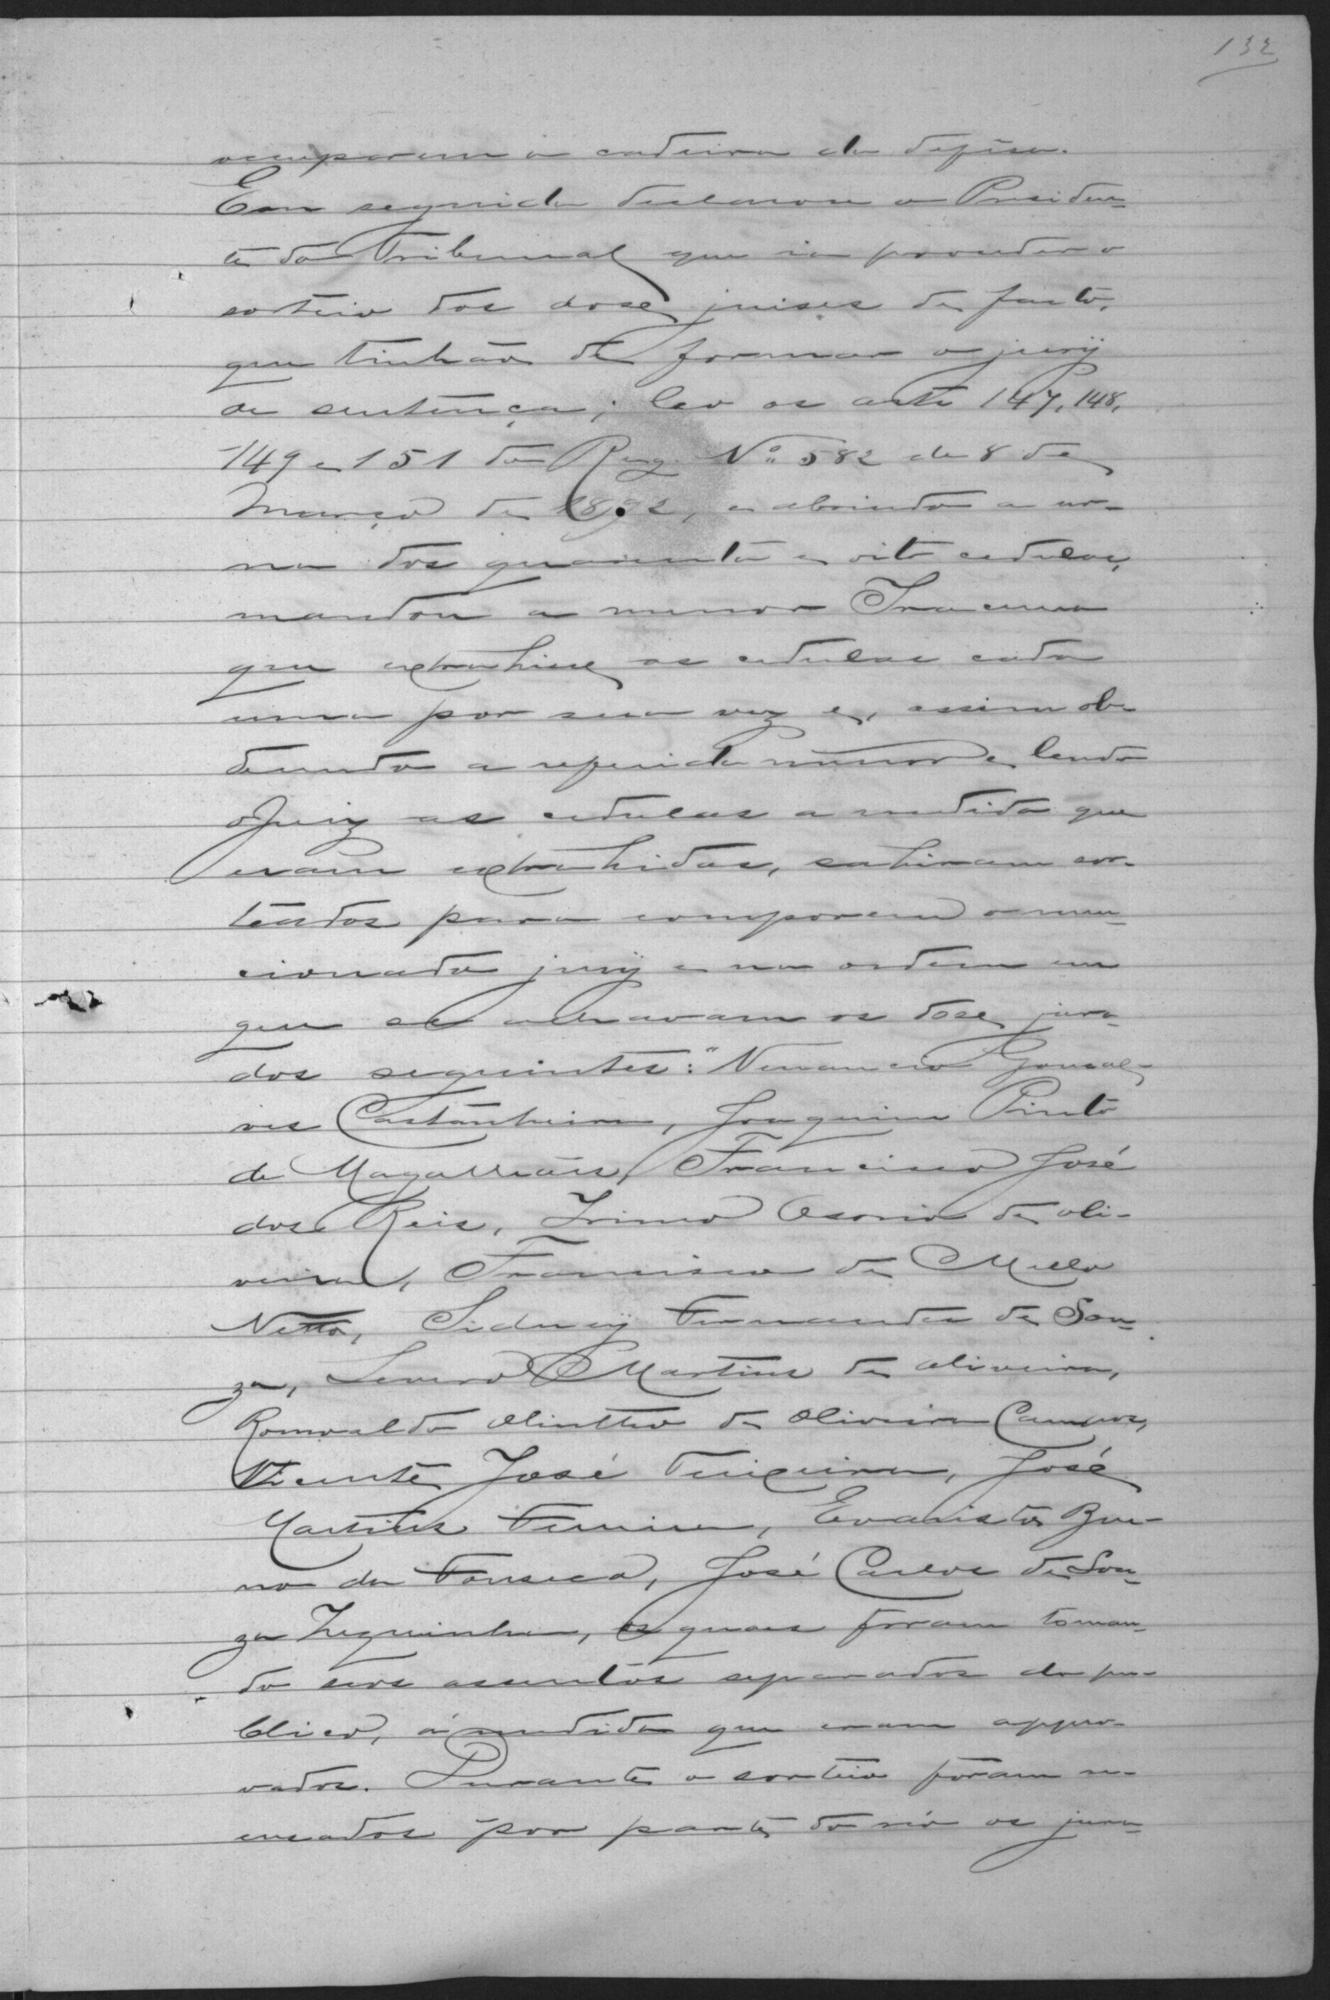 132
occuparam a cadeira da defesa.
Em seguida declarou o Presiden-
te do Tribunal que ia proceder o
sorteio dos dose juises de facto,
que tinhão de formar o jury
de sentença; leo os arts 147, 148,
149 e 151 do Reg. Nº 582 de 8 de
Março de 1892, e abrindo a ur-
na dos quarenta e oito cedulas,
mandou a menor Iracema
que extrahisse as cedulas cada
uma por sua vez e, assim obe-
decendo a referida menor e lendo
o Juiz as cedulas a medida que
eram extrahidas, sahiram sor-
teados para comporem o men-
cionado jury e na ordem em
que se achavam os dose jura-
dos seguintes: "Venancio Gonsal-
ves Castanheira, Joaquim Pinto
de Magalhães, Francisco José
dos Reis, Irineo Osorio de Oli-
veira, Francisco de Mello
Netto, Sidney Fernandes de Sou-
za, Severo Martins de Oliveira,
Romualdo Olintho de Oliveira Campos,
Vicente José Teixeira, José
Martins Ferreira, Evaristo Bue-
no da Fonseca, José Carlos de Sou-
za Zequinha, os quaes foram toman-
do seos assentos separados do pu-
blico, á medida que eram appro-
vados. Durante o sorteio foram re-
cusados por parte do réo os jura-